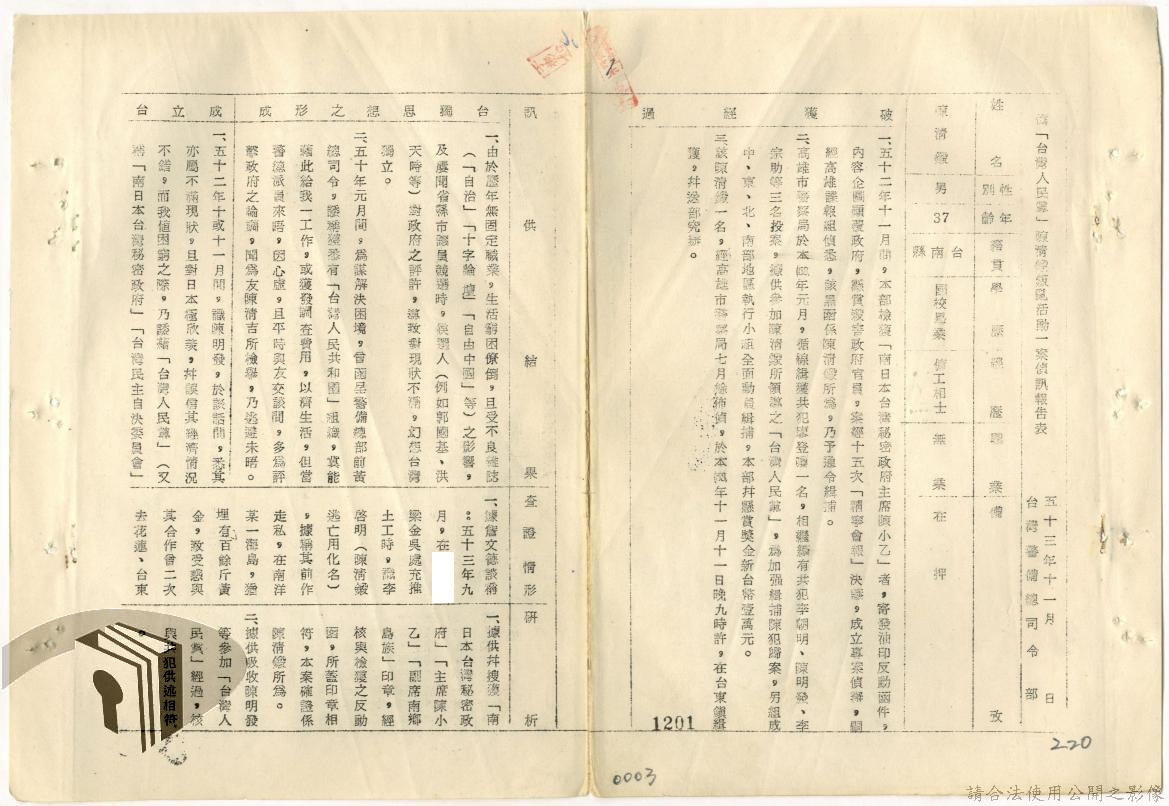 「台灣人民黨」陳清錽叛亂活動一案偵訊報告表
五十三年十一月　日
台灣警備總司令部
姓名
性別
年齡
籍貫
學歷
經歷
職業
備攷
男
37
台南縣
國校畢業
傭工相士
無業
在押
破獲經過
一、五十二年十一月間，本部檢獲「南日本台灣秘密政府主席陳小乙」者，寄發油印反動函件，
內容企圖顛覆政府，懸賞殺害政府官員，案經十五次「肅寧會報」決議，成立專案偵辦，嗣
經高雄諜報組偵悉，該黑函係陳清錽所為，乃予通令緝捕。
二、高雄市警察局於本年元月，循線緝獲共犯一名，相繼續有共犯李朝明、陳明發、李
宗助等三名投案，據供參加陳清錽所領導之「台灣人民黨」，為加强緝捕陳犯歸案，另組成
中、東、北、南部地區執行小組全面動員緝捕，本部幷懸賞獎金新台幣壹萬元。
三、該陳清錽一名，經高雄市警察局七月餘佈偵，於本年十一月十一日晚九時許，在台東鎮緝
獲，幷送部究辦。
訊供結果
查證情形
研析
台獨思想之形成
一、由於歷年無固定職業，生活窮困僚倒，且受不良雜誌
（「自治」「十字論壇」「自由中國」等）之影響，
及屢聞省縣市議員競選時，候選人（例如郭國基、洪
天時等）對政府之評許，導致對現狀不滿，幻想台灣
獨立。
二、五十年元月間，為謀解決困境，曾函呈警備總部前黃
總司令，謊稱獲悉有「台灣人民共和國」組織，冀能
藉此給我一工作，或獲發調查費用，以濟生活，但當
警總派員來晤，因心虛，且平時與友交談間，多為評
擊政府之論調，聞為友陳清吉所檢舉，乃逃避未晤。
成立台
一、五十二年十或十一月間，識陳明發，於談話間，悉其
亦屬不滿現狀，且對日本極欣羨，幷誤信其經濟情況
不錯，而我値困窮之際，乃謊藉「台灣人民黨」（又
稱「南日本台灣秘密政府」「台灣民主自決委員會」
一、據詹文德談稱
：五十三年九
月，在
梁金吳處充推
土工時，識李
啓明（陳清錽
逃亡用化名）
，據稱其前作
走私，在南洋
某一海島，
埋有百餘斤黃
金，致受惑與
其合作曾二次
去花連、台東
。
一、據供幷搜獲「南
日本台灣秘密政
府」「主席陳小
乙」「副席南鄉
島族」印章，經
核與檢獲之反動
函，所蓋印章相
符，本案確證係
陳清錽所為。
二、據供吸收陳明發
等參加「台灣人
民黨」經過，核
與共犯供述相符
1201
220
0003
請合法使用公開之影像